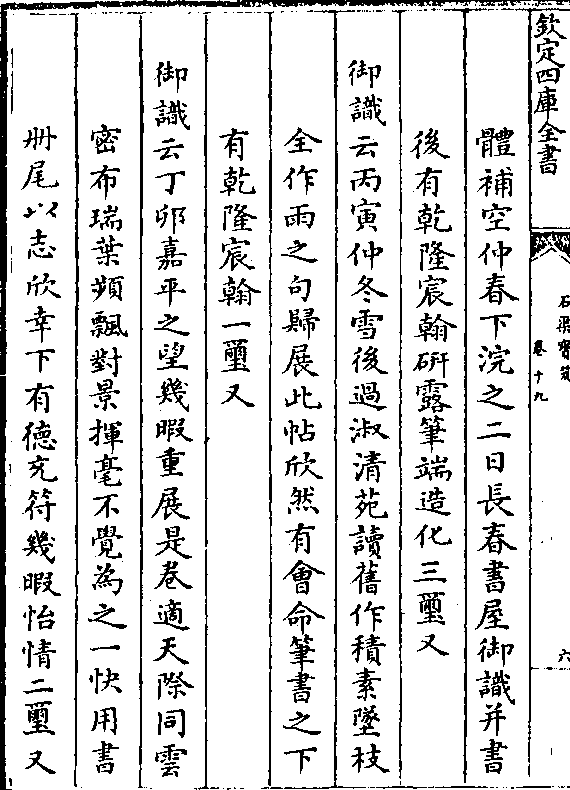 欽定四庫全書
石渠寶笈
卷十九
六
體補空仲春下浣之二日長春書屋御識并書
後有乾隆宸翰研露筆端造化三璽又
御識云丙寅仲冬雪後過淑清苑讀舊作積素墜枝
全作雨之句歸展此帖欣然有會命筆書之下
有乾隆宸翰一璽又
御識云丁卯嘉平之望幾暇重展是卷適天際同雲
密布瑞葉頻飄對景揮毫不覺為之一快用書
册尾以志欣幸下有德充符幾暇怡情二璽又